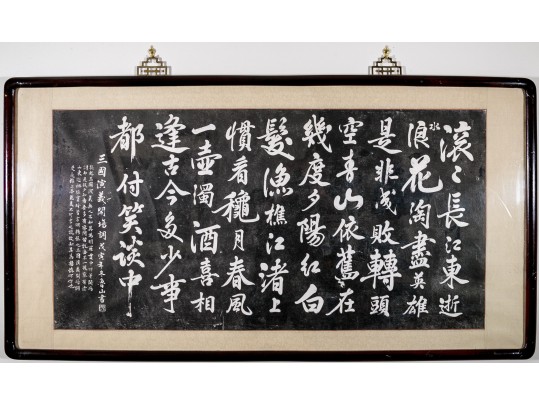 滚〻長江東逝
水浪花淘盡英雄
是非成敗轉頭
空青山依舊在
幾度夕陽紅白
髮漁樵江渚上
慣看穐月春風
一壺濁酒喜相
逢古今多少事
都付笑談中
三国演義開場詞戊寅年冬魯山書